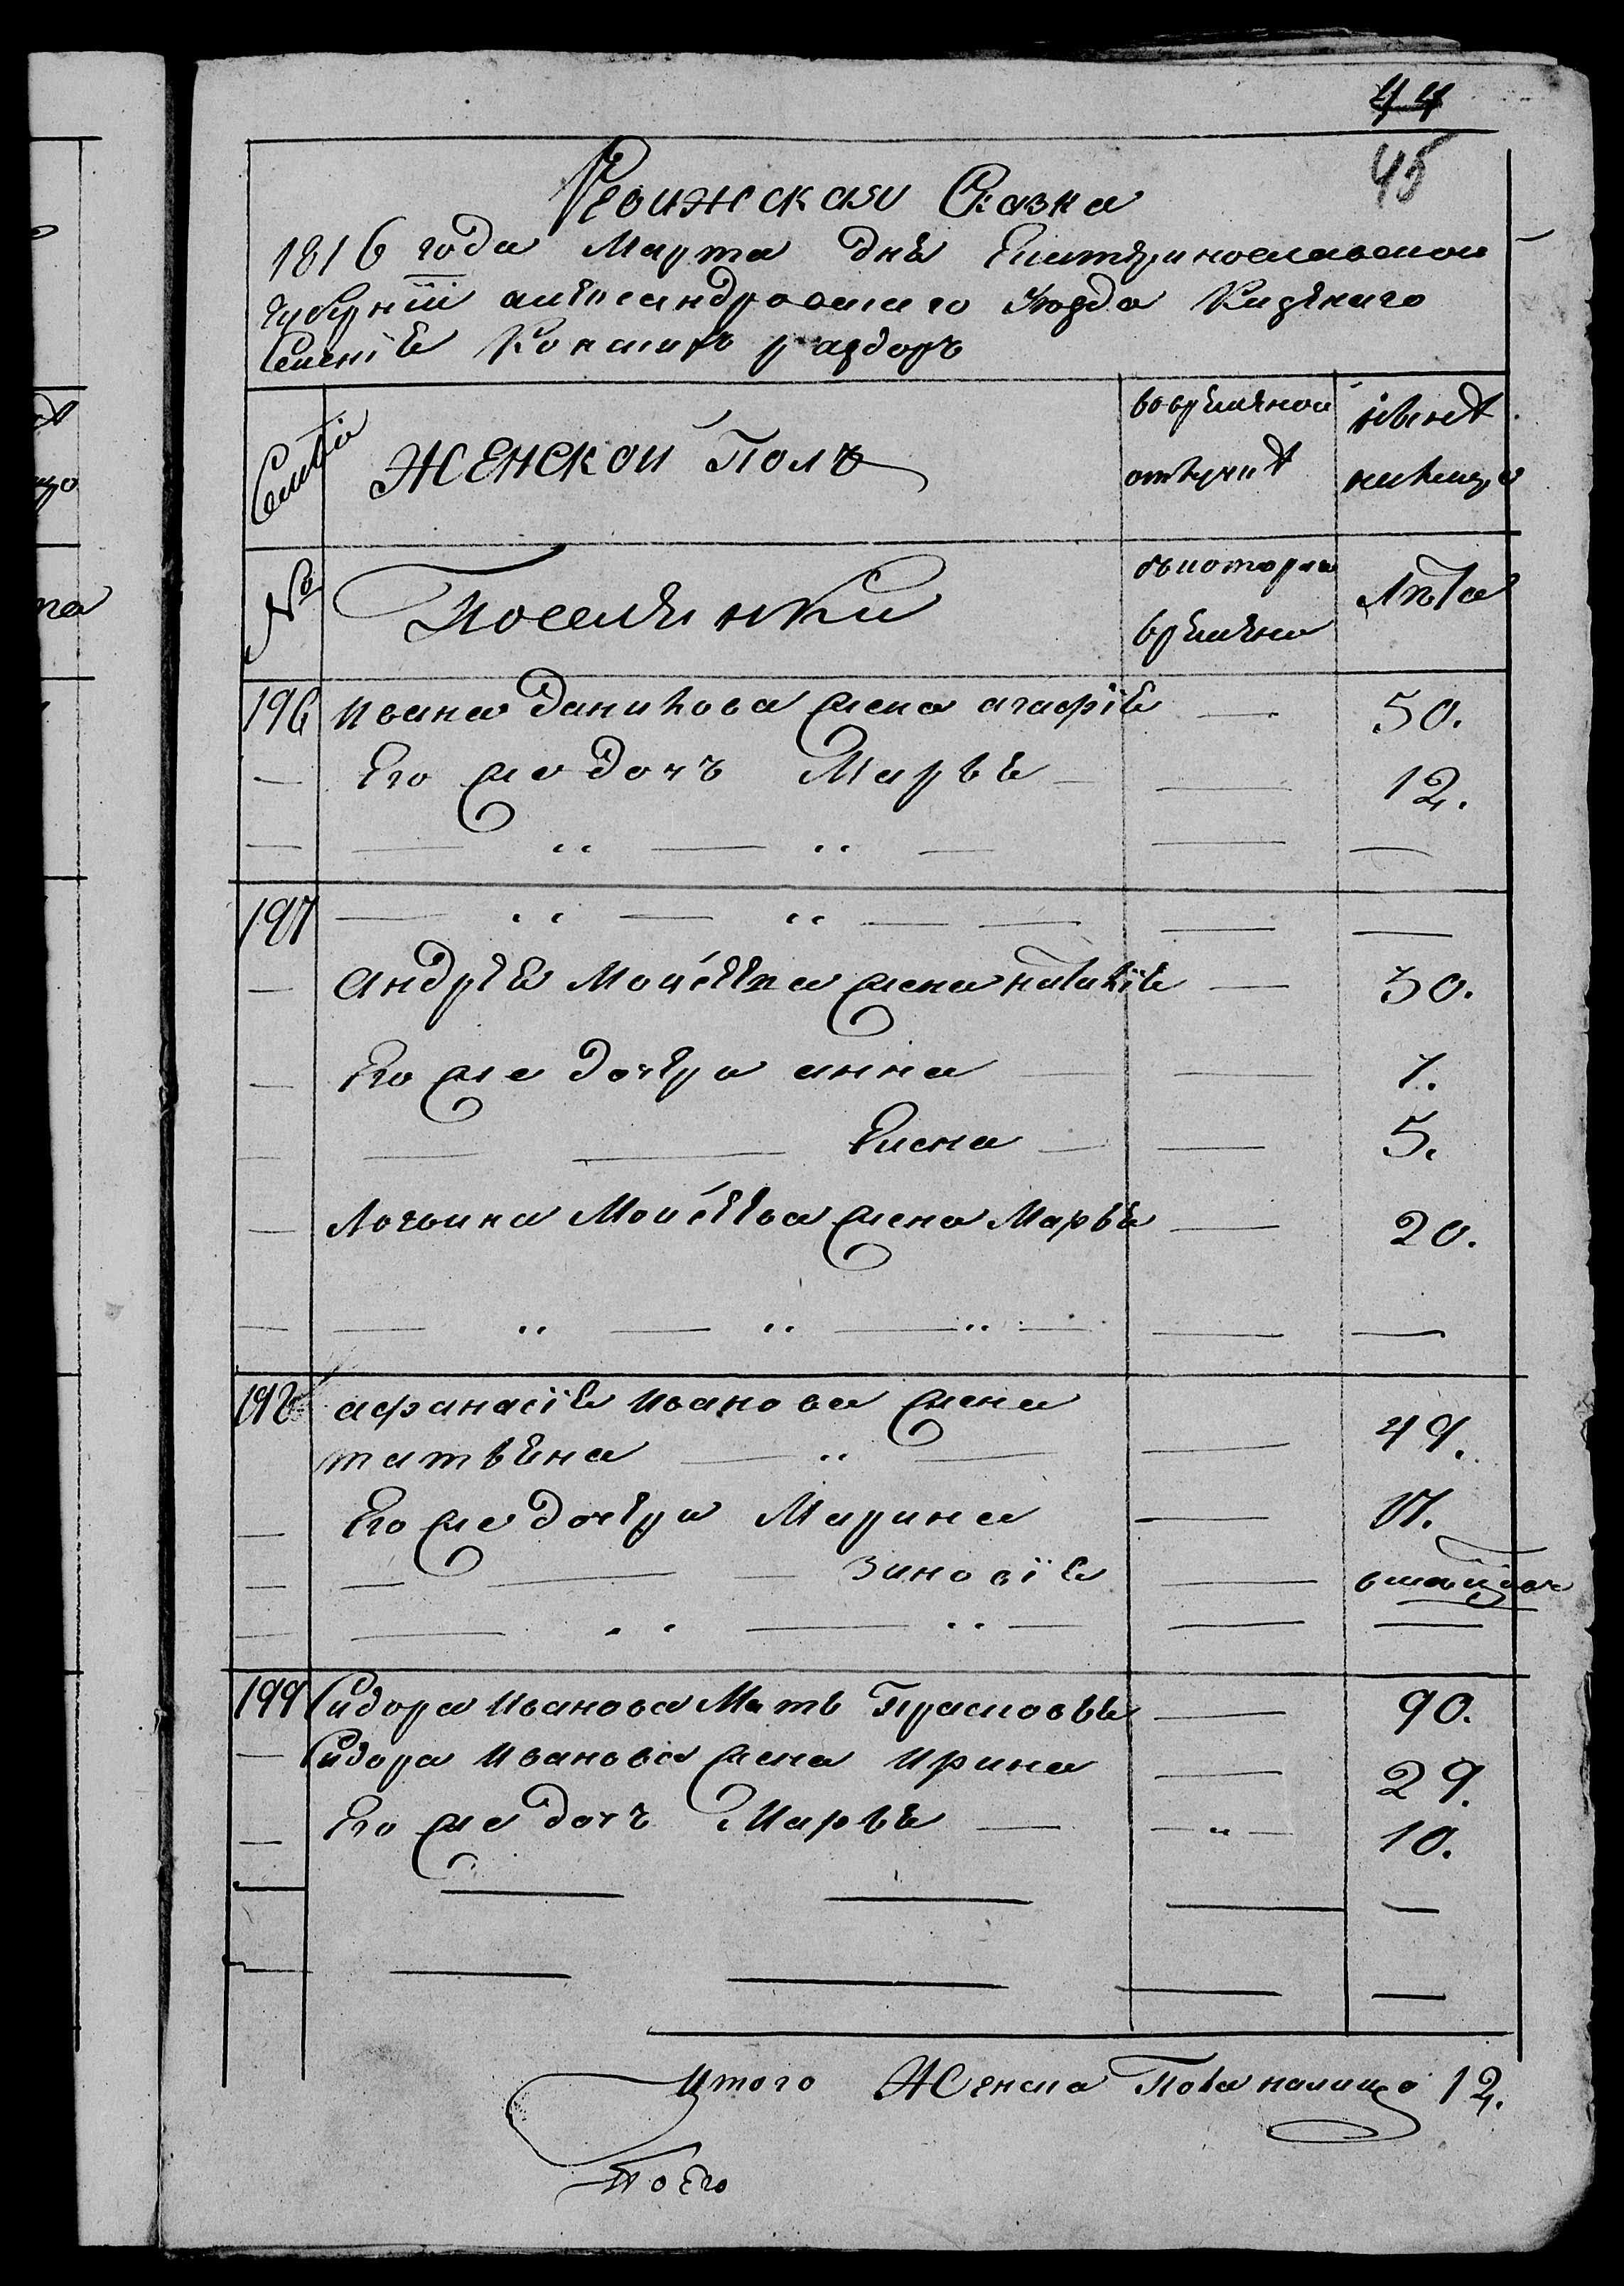 44
45
Ревижская Сказка
1816 года Марта дня Екатериносласкои
Губернїи александровскаго уезда Казеннаго
Селенїя Конских раздоръ
Семьи
Женскои Полъ
во временнои
отлучкѣ
нынѣ
налицо
№
Поселянки
с котораго
времяни
Лѣта
196 Ивана Данилова жена агафїя — 50.
— Его же дочъ Марья — 12.
197
— андрея Моисеева жена наталїя — 30.
— Его же дочери анна — 7.
— Елена — 5.
— Логвина Моисеева жена Марья — 20.
198 афанасїя Иванова жена
татьяна — 49.
— Его же дочери Марина — 17.
— зиновїя —
199 Сидора Иванова Мать Прасковья — 90.
— Сидора Иванова жена Ирина — 29.
— Его же дочъ Марья — 10.
Итого Женска Пола налицо 12.